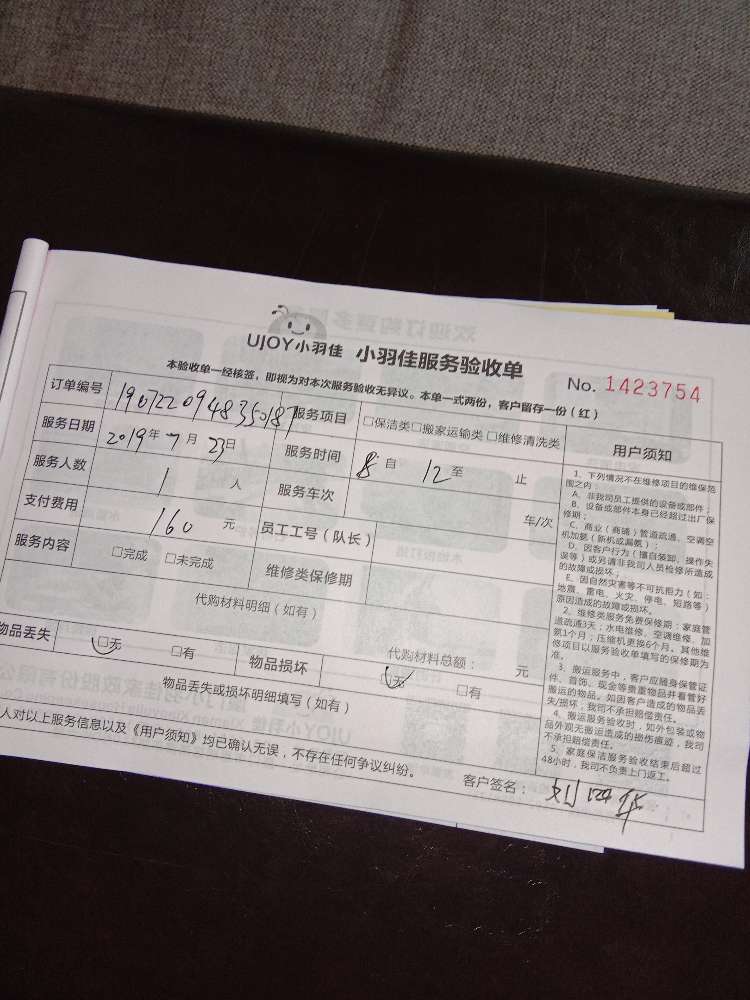 UJOY小羽佳 小羽佳服务验收单
No. 1423754
本验收单一经核签，即视为对本次服务验收无异议。本单一式两份，客户留存一份（红）
订单编号 1907220948350187 服务项目 □保洁类□搬家运输类 □维修清洗类
服务日期 2019年7月23日 服务时间 8自 12至 止
服务人数 1 人 服务车次 车/次
支付费用 160 元 员工工号（队长）
服务内容 □完成 □未完成 维修类保修期
代购材料明细（如有）
代购材料总额： 元
物品丢失 □无 □有 物品损坏 □无 □有
物品丢失或损坏明细填写（如有）
人对以上服务信息以及《用户须知》均已确认无误，不存在任何争议纠纷。
客户签名：
用户须知
1、下列情况不在维修项目的维保范
围之内：
A、非我司员工提供的设备或部件；
B、设备或部件本身已经超过出厂保
修期；
C、商业（商铺）管道疏通、空调空
机加氨（新机或漏氨）；
D、因客户行为（擅自装卸、操作失
误等）或另请非我司人员检修所造成
的故障或损坏；
E、因自然灾害等不可抗拒力（如：
地震、雷电、火灾、停电、短路等）
原因造成的故障或损坏。
2、维修类服务免费保修期：家庭管
道疏通3天；水电维修、空调维修、加
氨1个月；压缩机更换6个月。其他维
修项目以服务验收单填写的保修期为
准。
3、搬运服务中，客户应随身保管证
件、首饰、现金等贵重物品并看管好
搬运的物品。如因客户造成的物品丢
失/损坏，我司不承担赔偿责任。
4、搬运服务验收时，如外包装或物
品外观无搬运造成的损伤痕迹，我司
不承担赔偿责任。
5、家庭保洁服务验收结束后超过
48小时，我司不负责上门返工。